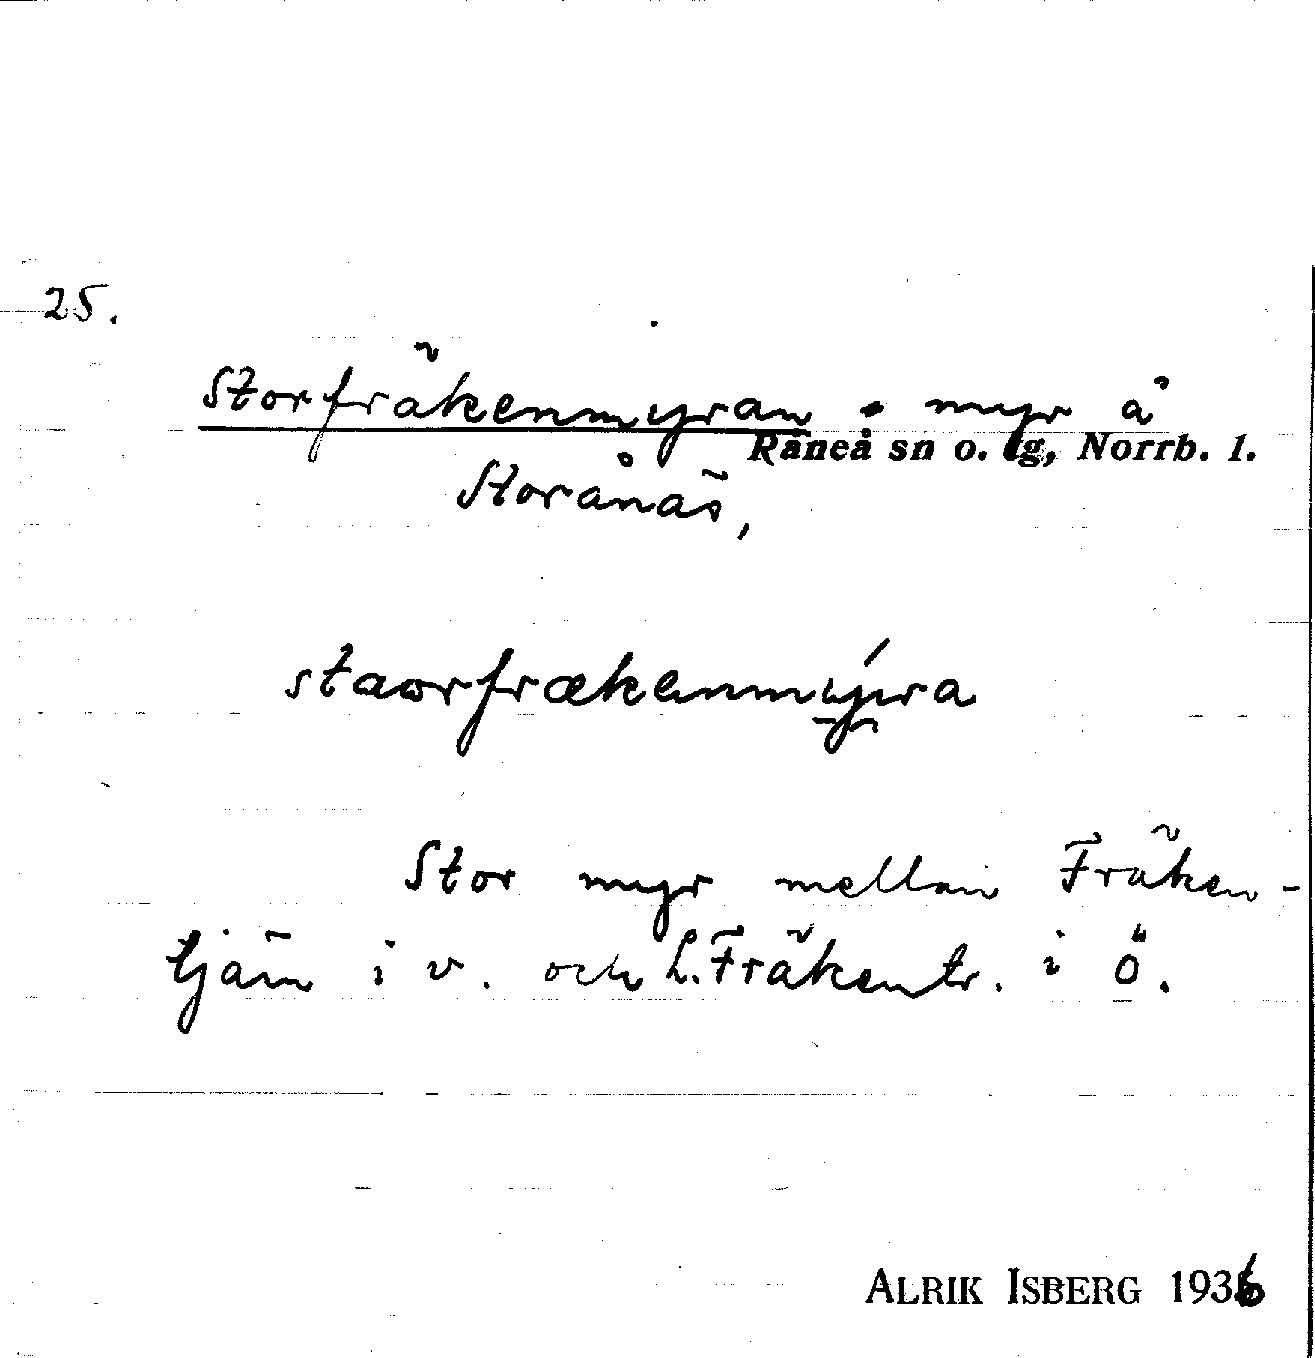 25.
Storfräkenmyran • myr å
Råneå sn o. tg, Norrb. l.
Storånäs,
staorfrækenmyra
Stor myr mellan Fräken-
tjärn i v. och L. Fräkentr. i ö.
ALRIK ISBERG 1936